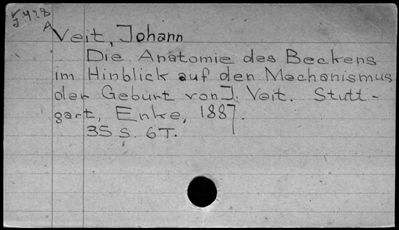 J.428
A
Veit, Johann
Die Anatomie des Beckens
im Hinblick auf den Mechanismus
der Geburt von J. Veit. Stutt-
gart, Enke, 1887.
35 S. 6T.